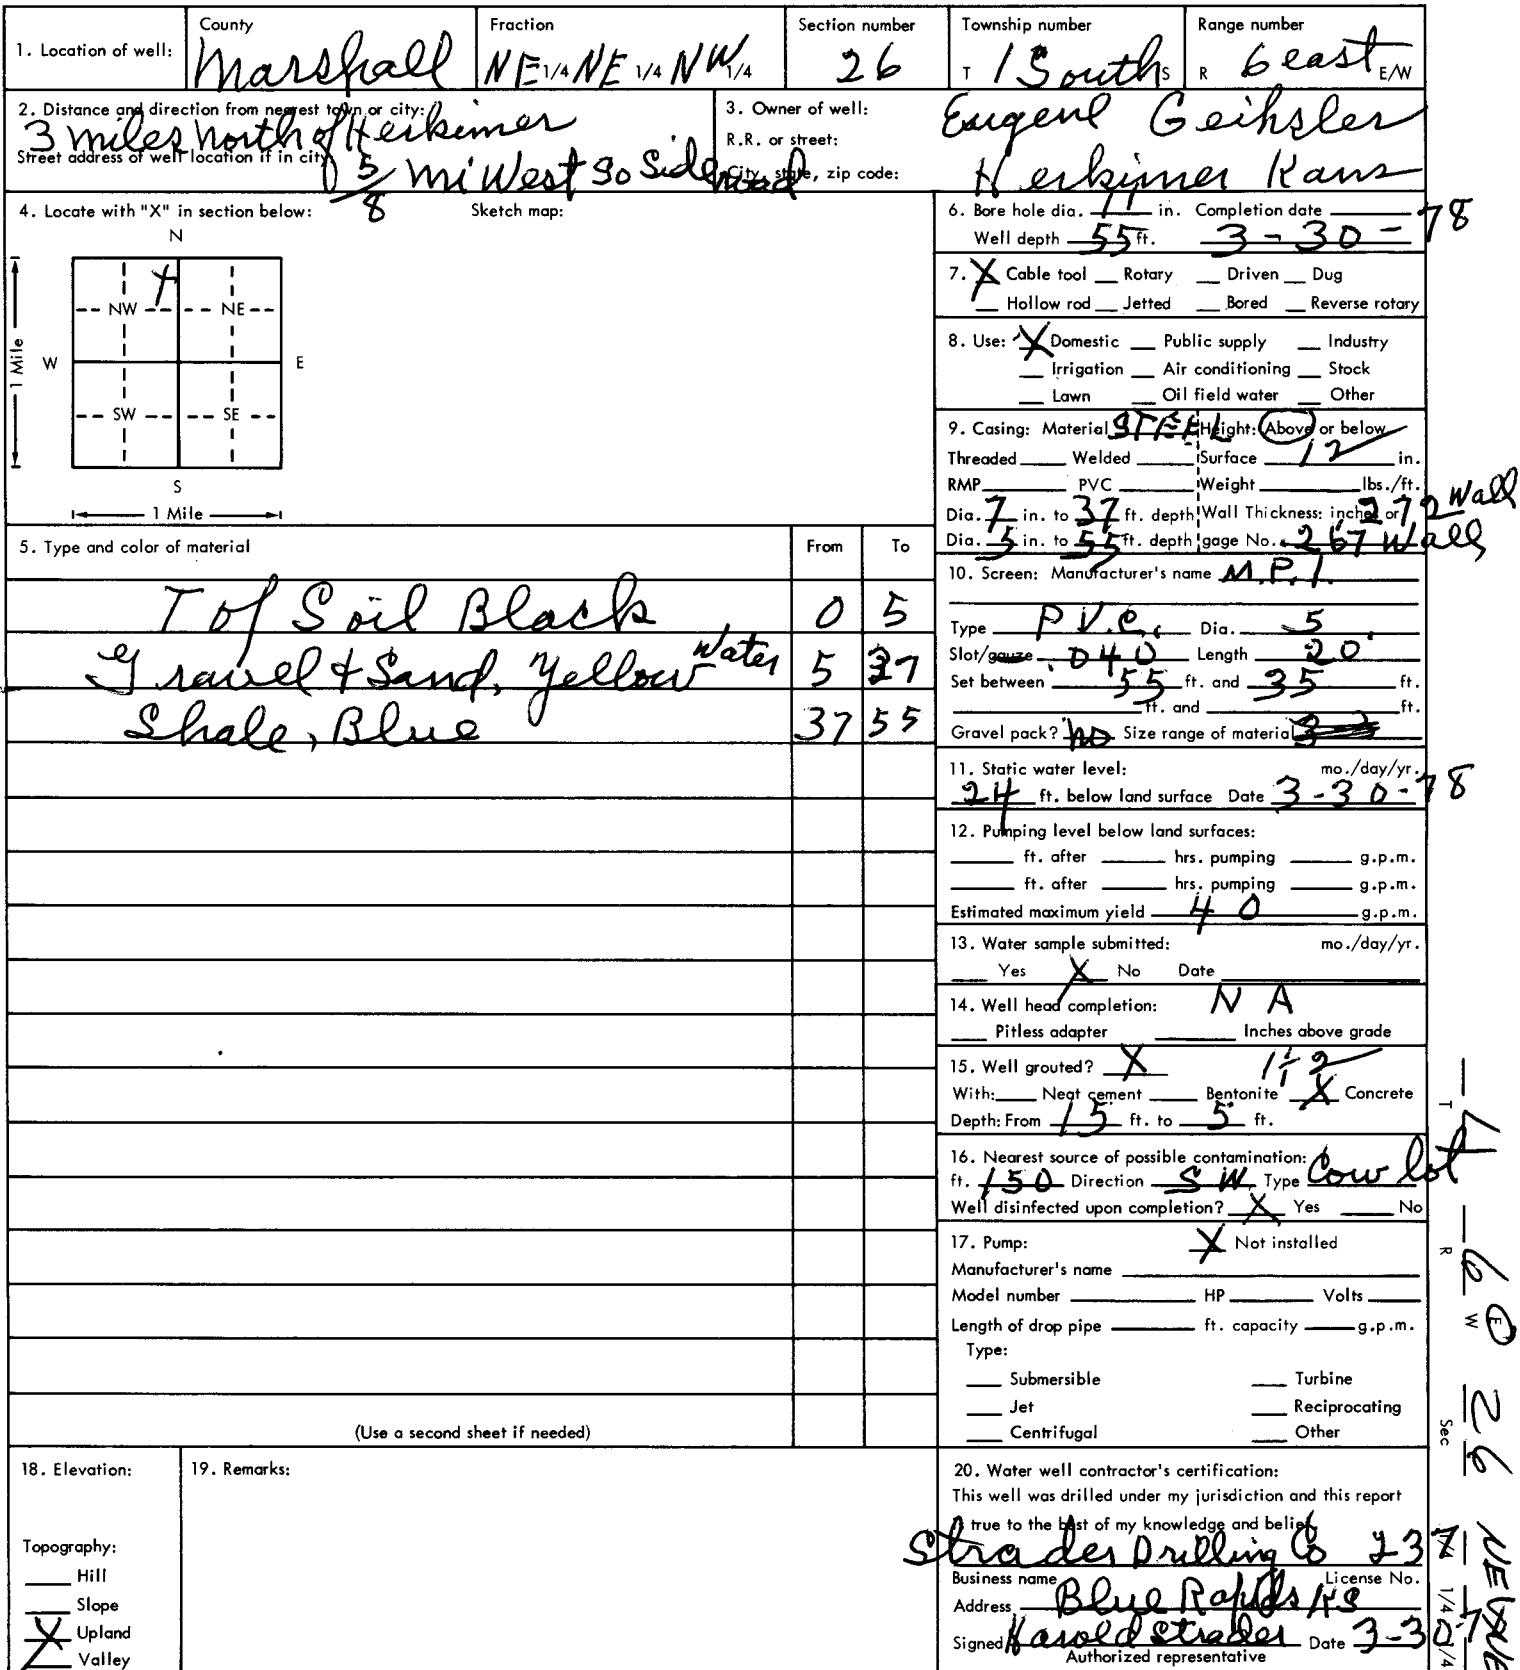 1. Location of well: County Marshall Fraction NE 1/4 NE 1/4 NW 1/4 Section number 26 Township number T 1 South S Range number R 6 east E/W
2. Distance and direction from nearest town or city: 3 miles north of Herkimer
Street address of well location if in city: 5/8 mi West So Side road
3. Owner of well: Eugene Geihsler
R.R. or street:
City, state, zip code: Herkimer Kans
4. Locate with "X" in section below: Sketch map:
N
X
NW NE
W E
1 Mile
SW SE
S
1 Mile
5. Type and color of material From To
Tof Soil Black 0 5
Gravel & Sand, Yellow Water 5 37
Shale, Blue 37 55
(Use a second sheet if needed)
6. Bore hole dia. 11 in. Completion date
Well depth 55 ft. 3-30-78
7. X Cable tool Rotary Driven Dug
Hollow rod Jetted Bored Reverse rotary
8. Use: X Domestic Public supply Industry
Irrigation Air conditioning Stock
Lawn Oil field water Other
9. Casing: Material STEEL Height: Above or below
Threaded Welded Surface 12 in.
RMP PVC Weight lbs./ft.
Dia. 7 in. to 37 ft. depth Wall Thickness: inches or 272 Wall
Dia. 5 in. to 55 ft. depth gage No. .267 Wall
10. Screen: Manufacturer's name M.P.I.
Type P.V.C. Dia. 5
Slot/gauze .040 Length 20'
Set between 55 ft. and 35 ft.
ft. and ft.
Gravel pack? no Size range of material
11. Static water level: mo./day/yr.
24 ft. below land surface Date 3-30-78
12. Pumping level below land surfaces:
ft. after hrs. pumping g.p.m.
ft. after hrs. pumping g.p.m.
Estimated maximum yield 40 g.p.m.
13. Water sample submitted: mo./day/yr.
Yes X No Date
14. Well head completion: N A
Pitless adapter Inches above grade
15. Well grouted? X
With: Neat cement Bentonite X Concrete
Depth: From 15 ft. to 5 ft.
16. Nearest source of possible contamination:
ft. 150 Direction S W. Type Cow lot
Well disinfected upon completion? X Yes No
17. Pump: X Not installed
Manufacturer's name
Model number HP Volts
Length of drop pipe ft. capacity g.p.m.
Type:
Submersible Turbine
Jet Reciprocating
Centrifugal Other
18. Elevation:
Topography:
Hill
Slope
X Upland
Valley
19. Remarks:
20. Water well contractor's certification:
This well was drilled under my jurisdiction and this report
is true to the best of my knowledge and belief.
Strader Drilling Co 237
Business name License No.
Address Blue Rapids KS
Signed Harold Strader Date 3-30-7
Authorized representative
T R 6 E W Sec 26 1/4 1/4 1/4